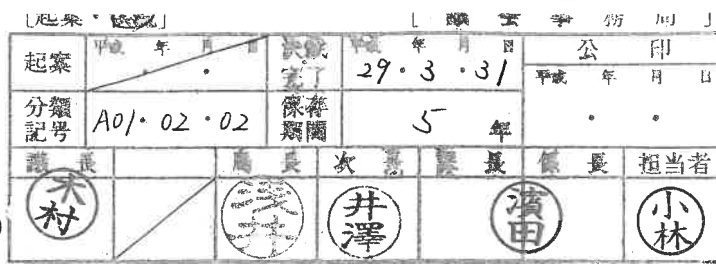 [起案・供覧] [議会事務局]
起案 平成 年 月 日 決裁完了 平成 年 月 日 29・3・31 公印
平成 年 月 日
分類記号 A01・02・02 保存期間 5年 ・ ・
議長 局長 次長 課長 係長 担当者
木村 浅井 井澤 濱田 小林